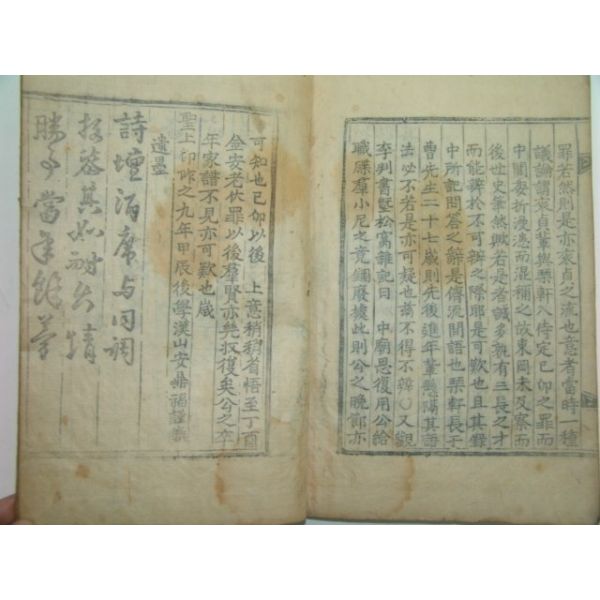 罪若然則是亦哀貞之流也意者當時一種
議論謂哀貞輩與琹軒入侍定己卯之罪而
中間委折漫漶而混稱之故東岡未及察而
後世史筆然歟若是者誠多孰有三長之才
而能辨於不可辨之際耶是可歎也且其錄
中所記問答之辭是傳流間語也琹軒長于
曹先生二十七歲則先後進年輩懸隔其語
法必不若是亦可疑也兹不得不辨〇又觀
李判書墍松窩雜記曰 中廟思復用公給
職牒羣小尼之竟錮廢據此則公之晩節亦
可知也已卯以後 上意稍稍省悟至丁酉
金安老伏罪以後羣賢亦幾収復矣公之卒
年家譜不見亦可歎也歲
聖上卽阼之九年甲辰後學漢山安鼎福謹識
遺墨
詩壇酒席与同調
其如耐久情
當年